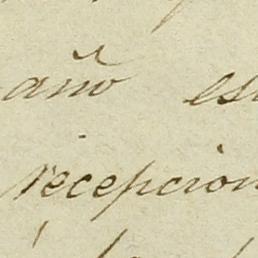 año es
recepcion